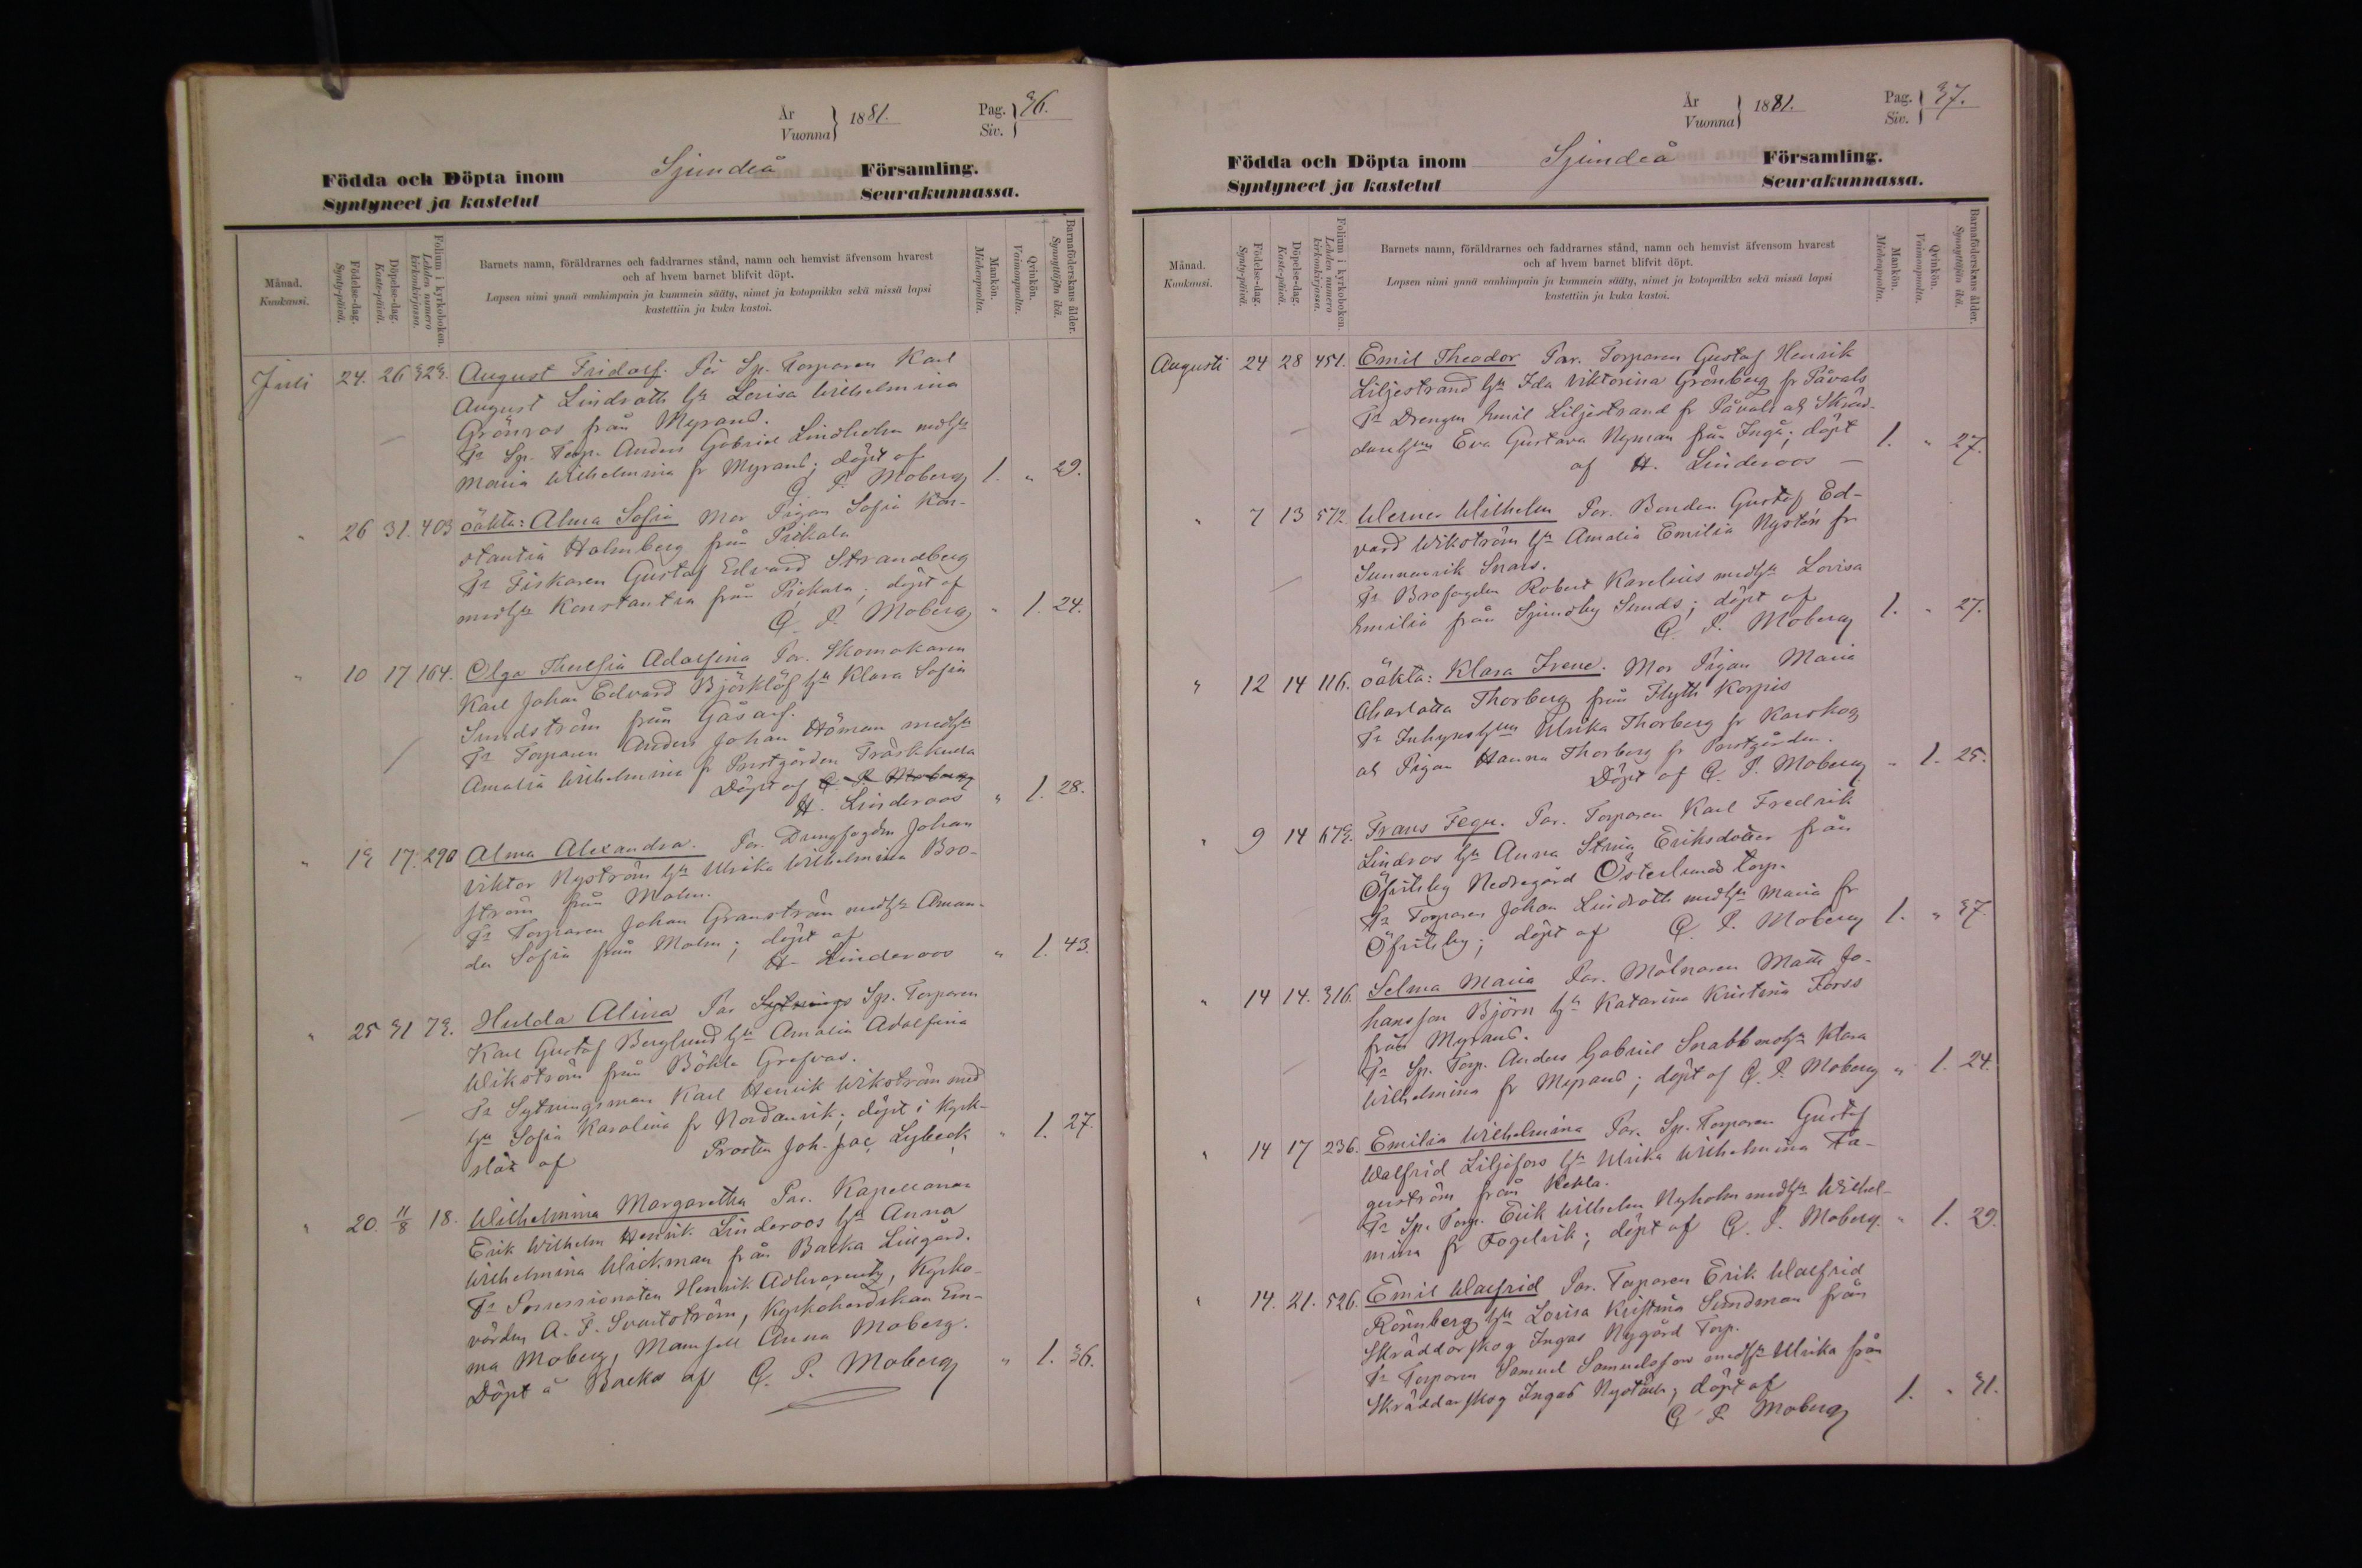 År
Vuonna } 1881.
Pag.
Siv. } 36.
Födda och Döpta inom Sjundeå Församling.
Syntyneet ja kastetut Seurakunnassa.
Månad.
Kuukausi.
Födelse-dag.
Synty-päivä.
Döpelse-dag.
Kaste-päivä.
Folium i kyrkoboken.
Lehden numero kirkonkirjassa.
Barnets namn, föräldrarnes och faddrarnes stånd, namn och hemvist äfvensom hvarest
och af hvem barnet blifvit döpt.
Lapsen nimi ynnä vanhimpain ja kummein sääty, nimet ja kotopaikka sekä missä lapsi
kastettiin ja kuka kastoi.
Mankön.
Miehenpuolta.
Qvinkön.
Vaimonpuolta.
Barnaföderskans ålder.
Synnyttäjän ikä.
Juli 24. 26 323. August Fridolf. Par Sp. Torparen Karl
August Lindroth h:u Lovisa Wilhelmina
Grönros från Myrans.
Fr Sp. Torp. Anders Gabriel Lindholm med h:u
Maria Wilhelmina fr Myrans; döpt af
G. P. Moberg 1. " 29.
" 26 31. 403 oäkta: Alma Sofia Mor Pigan Sofia Kon-
stantia Holmberg från Pickala
Fr Fiskaren Gustaf Edvard Strandberg
med h:u Konstantia från Pickala; döpt af
G. P. Moberg " 1. 24.
" 10 17 164. Olga Theresia Adolfina Par. Skomakaren
Karl Johan Edvard Björklöf h:u Klara Sofia
Sundström från Gåsarf.
Fr Torparen Anders Johan Höman med h:u
Amalia Wilhelmina fr Prestgården Träskkulla
Döpt af G. P. Moberg
H. Linderoos " 1. 28.
" 13 17. 290 Alma Alexandra. Par. Drengfogden Johan
Viktor Nyström h:u Ulrika Wilhelmina Bro-
ström från Malm.
Fr Torparen Johan Granström med h:u Aman-
da Sofia från Malm; döpt af
H. Linderoos " 1. 43.
" 25 31 73. Hulda Alina Par Sytnings Sp. Torparen
Karl Gustaf Berglund h:u Amalia Adolfina
Wikström från Böhle Grefvas.
Fr Sytningsman Karl Henrik Wikström med
h:u Sofia Karolina fr Nordanvik; döpt i Kyrk-
slät af Prosten Joh. Jac. Lybeck " 1. 27.
" 20. 11/8 18. Wilhelmina Margaretha Par. Kapellanen
Erik Wilhelm Henrik Linderoos h:u Anna
Wilhelmina Wickman från Backa Lillgård.
Fr Possessionaten Henrik Adlercreutz, Kyrko-
värden A. F. Svartström, Kyrkoherdskan Em-
ma Moberg, Mamsell Anna Moberg.
Döpt å Backa af G. P. Moberg " 1. 36.
År
Vuonna } 1881.
Pag.
Siv. } 37.
Födda och Döpta inom Sjundeå Församling.
Syntyneet ja kastetut Seurakunnassa.
Månad.
Kuukausi.
Födelse-dag.
Synty-päivä.
Döpelse-dag.
Kaste-päivä.
Folium i kyrkoboken.
Lehden numero kirkonkirjassa.
Barnets namn, föräldrarnes och faddrarnes stånd, namn och hemvist äfvensom hvarest
och af hvem barnet blifvit döpt.
Lapsen nimi ynnä vanhimpain ja kummein sääty, nimet ja kotopaikka sekä missä lapsi
kastettiin ja kuka kastoi.
Mankön.
Miehenpuolta.
Qvinkön.
Vaimonpuolta.
Barnaföderskans ålder.
Synnyttäjän ikä.
Augusti 24 28 451. Emil Theodor Par. Torparen Gustaf Henrik
Liljestrand h:u Ida Viktorina Grönberg fr Påvals
Fr Drengen Emil Liljestrand fr Påvals och Skräd-
dareh:un Eva Gustava Nyman från Ingå; döpt
af H. Linderoos — 1. " 27.
" 7 13 572. Werner Wilhelm Par. Bonden Gustaf Ed-
vard Wikström h:u Amalia Emilia Nystén fr
Sunnanvik Snars.
Fr Brofogden Robert Karelius med h:u Lovisa
Emilia från Sjundby Sunds; döpt af
G. P. Moberg 1. " 27.
" 12 14 116. oäkta: Klara Irene. Mor Pigan Maria
Charlotta Thorberg från Flyth Korpis
Fr Inhyseh:un Ulrika Thorberg fr Karskog
och Pigan Hanna Thorberg fr Prestgården.
Döpt af G. P. Moberg " 1. 25.
" 9 14 673. Frans Fegu. Par. Torparen Karl Fredrik
Lindros h:u Anna Stina Eriksdotter från
Öfvitsby Nedregård Österlund torp.
Fr Torparen Johan Lindroth med h:u Maria fr
Öfvitsby; döpt af G. P. Moberg 1. " 37.
" 14 14. 316. Selma Maria Par. Mölnaren Matts Jo-
hansson Björn h:u Katarina Kristina Forss
från Myrans.
Fr Sp. Torp. Anders Gabriel Snabb med h:u Klara
Wilhelmina fr Myrans; döpt af G. P. Moberg " 1. 24.
" 14 17 236. Emilia Wilhelmina Par. Sp. Torparen Gustaf
Walfrid Liljefors h:u Ulrika Wilhelmina Fa-
gerström från Kekla.
Fr Sp. Torp. Erik Wilhelm Nyholm med h:u Wilhel-
mina fr Fogelvik; döpt af G. P. Moberg. " 1. 29.
" 14. 21. 526. Emil Walfrid Par. Torparen Erik Walfrid
Rönnberg h:u Lovisa Kristina Sundman från
Skräddarskog Ingas Nygård Torp.
Fr Torparen Samuel Samuelsson med h:u Ulrika från
Skräddarskog Ingas; döpt af
G. P. Moberg 1. " 31.